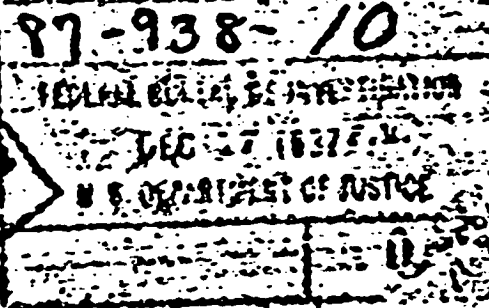 87-938-10
FEDERAL BUREAU OF INVESTIGATION
DEC 27 1937
U. S. DEPARTMENT OF JUSTICE